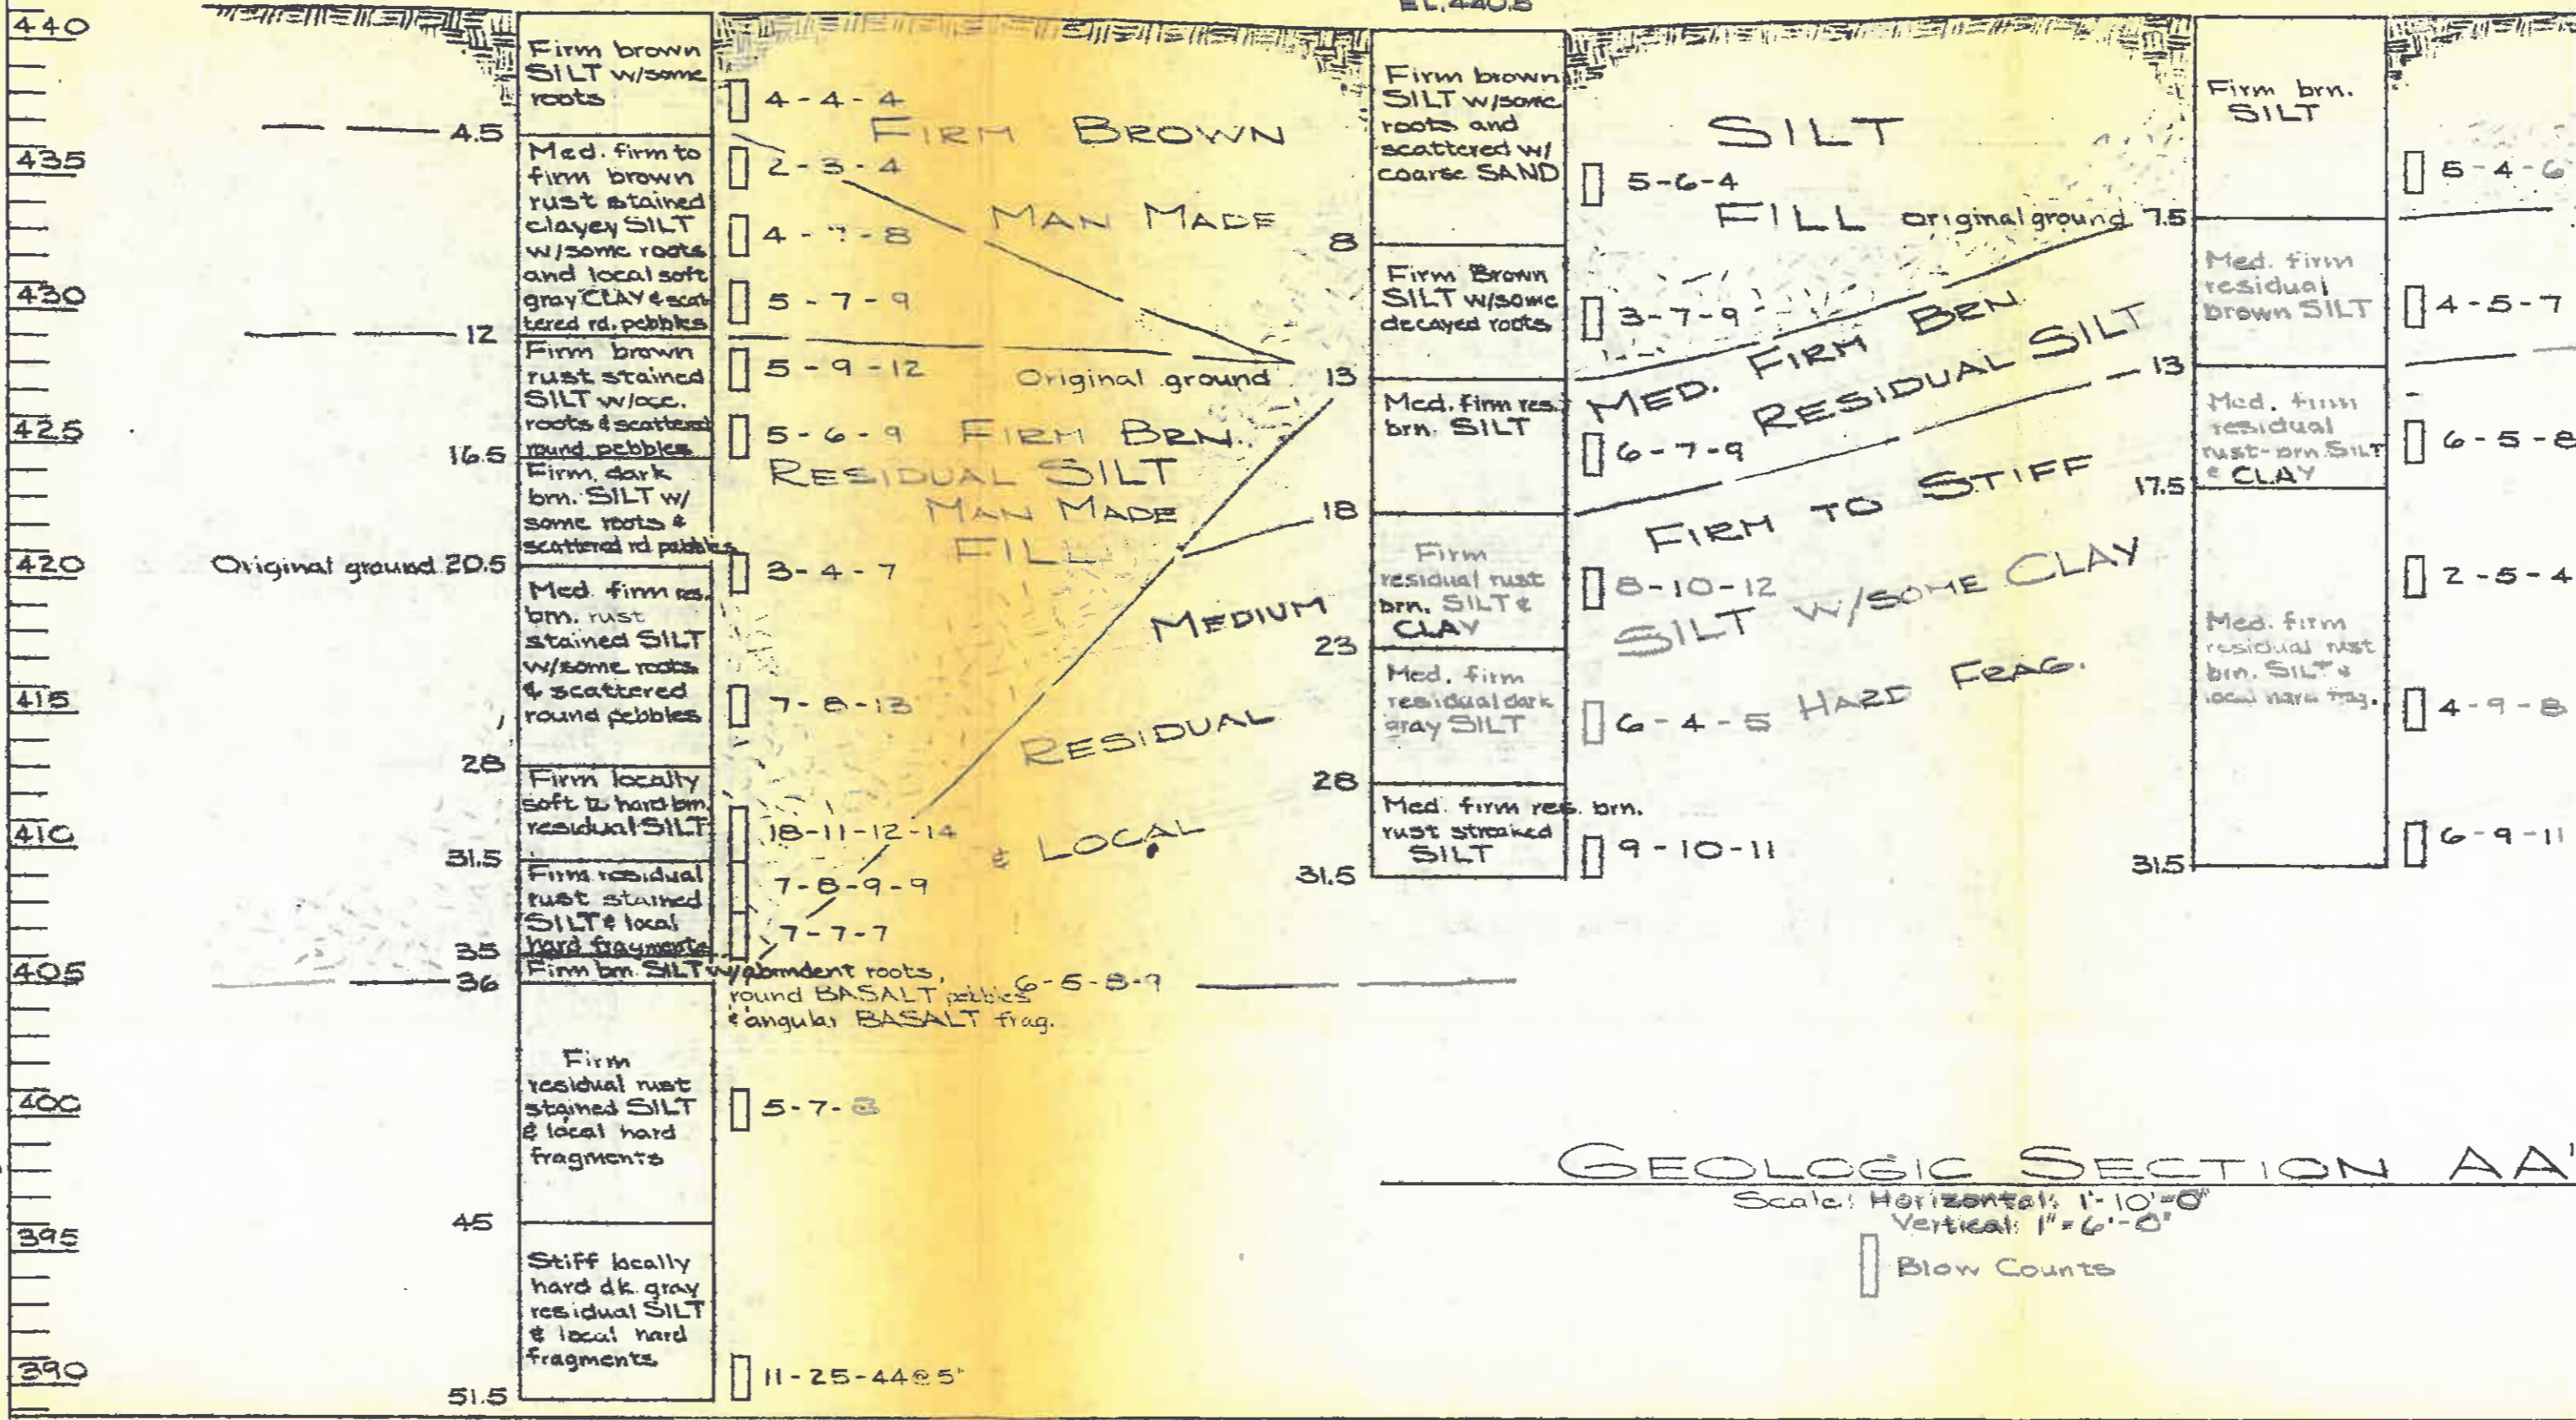 EL. 440.5
440
435
430
425
420
415
410
405
400
395
390
Firm brown
SILT w/some
roots
4.5
Med. firm to
firm brown
rust stained
clayey SILT
w/some roots
and local soft
gray CLAY & scat
tered rd. pebbles
12
Firm brown
rust stained
SILT w/occ.
roots & scattered
round pebbles
16.5
Firm dark
brn. SILT w/
some roots &
scattered rd pebbles
Original ground 20.5
Med. firm res.
brn. rust
stained SILT
w/some roots
& scattered
round pebbles
28
Firm locally
soft to hard brn.
residual SILT
31.5
Firm residual
rust stained
SILT & local
hard fragments
35
Firm brn SILT w/abundent roots,
round BASALT pebbles
& angular BASALT frag.
36
Firm
residual rust
stained SILT
& local hard
fragments
45
Stiff locally
hard dk. gray
residual SILT
& local hard
fragments
51.5
4-4-4
2-3-4
4-7-8
5-7-9
5-9-12
5-6-9
3-4-7
7-8-13
18-11-12-14
7-8-9-9
7-7-7
6-5-8-9
5-7-8
11-25-44@5"
FIRM BROWN
MAN MADE
Original ground
FIRM BRN.
RESIDUAL SILT
MAN MADE
FILL
MEDIUM
RESIDUAL
& LOCAL
Firm brown
SILT w/some
roots and
scattered w/
coarse SAND
8
Firm Brown
SILT w/some
decayed roots
13
Med. firm res.
brn. SILT
18
Firm
residual rust
brn. SILT &
CLAY
23
Med. firm
residual dark
gray SILT
28
Med. firm res. brn.
rust streaked
SILT
31.5
5-6-4
3-7-9
6-7-9
8-10-12
6-4-5
9-10-11
SILT
FILL
Original ground 7.5
MED. FIRM BRN.
RESIDUAL SILT
FIRM TO STIFF
SILT W/SOME CLAY
HARD FRAG.
Firm brn.
SILT
Med. firm
residual
brown SILT
13
Med. firm
residual
rust-brn. SILT
& CLAY
17.5
Med. firm
residual rust
brn. SILT &
local hard frag.
31.5
5-4-6
4-5-7
6-5-8
2-5-4
4-9-8
6-9-11
GEOLOGIC SECTION AA'
Scale: Horizontal: 1"-10'-0"
Vertical: 1"=6'-0"
Blow Counts